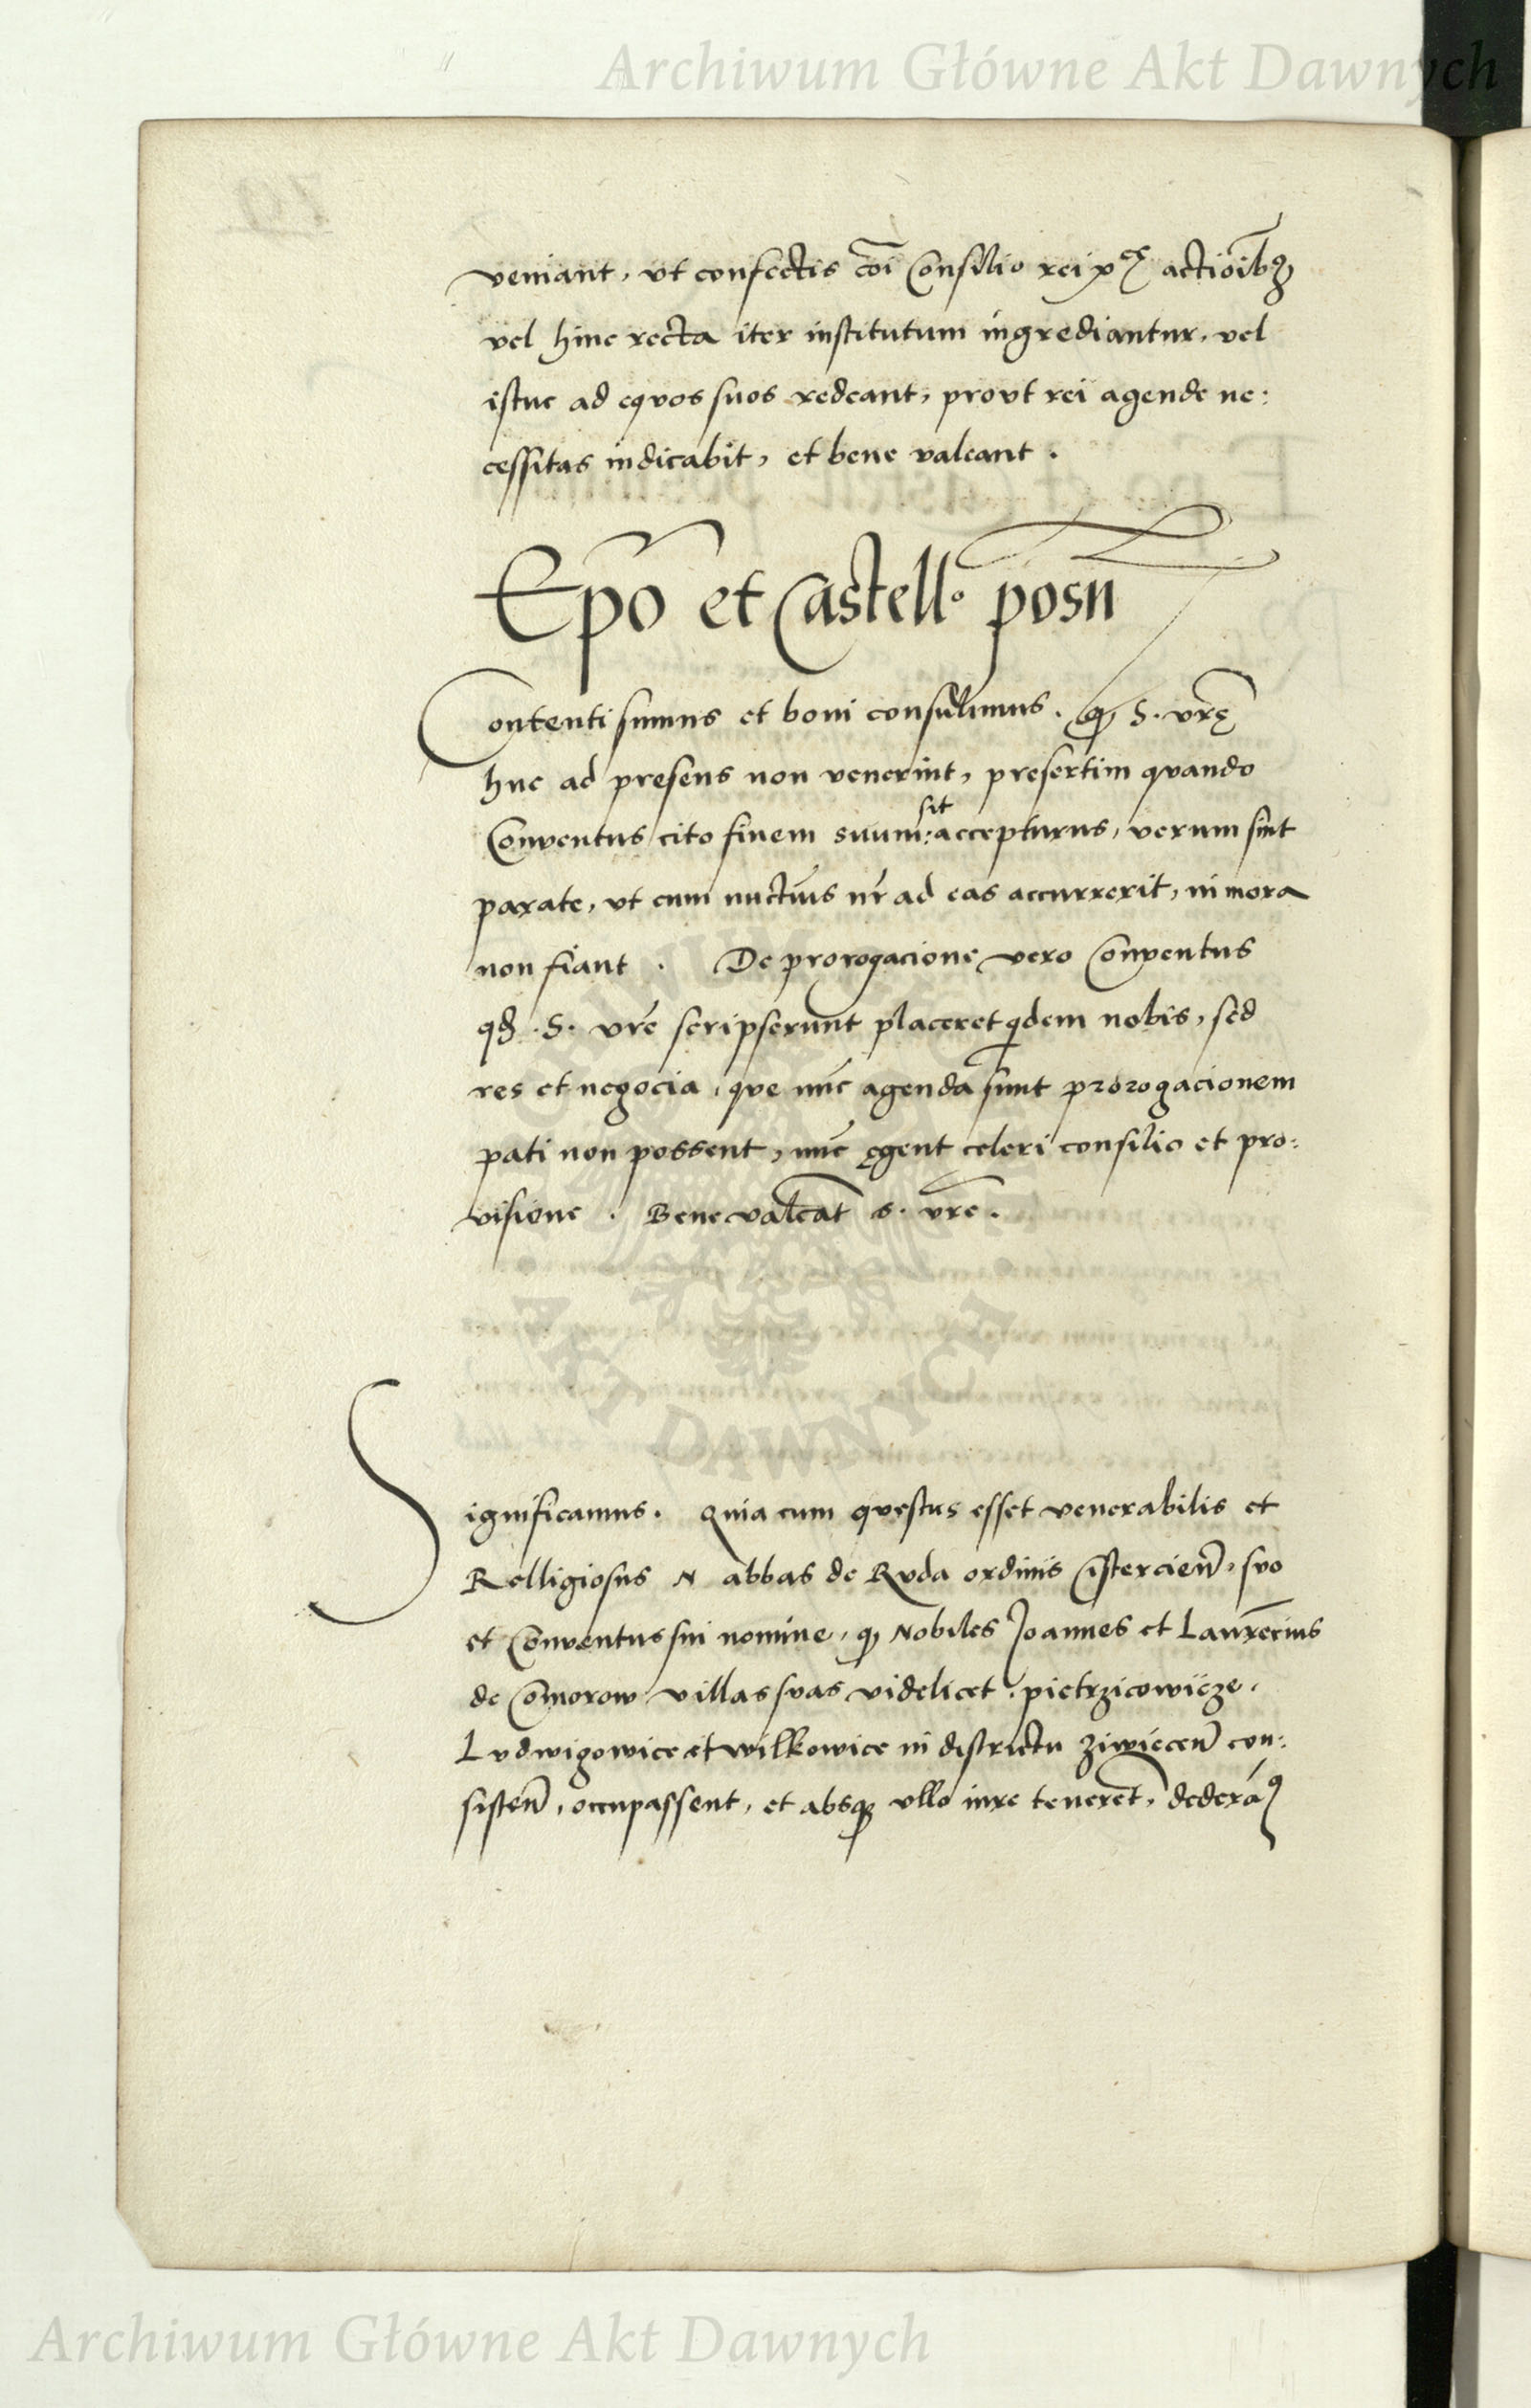 Archiwum Główne Akt Dawnych
veniant, vt confectis cōi Consilio rei p ce actioibꝫ
vel hinc recta iter institutum ingrediantur, vel
istuc ad equos suos redeant, prout rei agende ne:
cessitas indicabit, et bene valeant.
Epō et Castell° posn̄
Contenti sumus et boni consulimus. ꝙ S. vrę̄
huc ad presens non venerint, presertim quando
Conventus cito finem suum: sit accepturus, verum sint
parate, vt cum nuctius nr̄ ad eas accurrerit, in mora
non fiant. De prorogacione vero Conventus
qđ .S. vrē scripserunt placeret qdem nobis, sed
res et negocia, que nūc agenda sunt prorogacionem
pati non possent, nūc ęgent celeri consilio et pro:
visione. Bene valeāt S. vrē.
ARCHIWUM GŁÓWNE AKT DAWNYCH
Significamus. Quia cum questus esset venerabilis et
Relligiosus N abbas de Ruda ordinis Cistercien̄, suo
et Conventus sui nomine, ꝙ Nobiles Joannes et Laurēcius
de Comorow villas suas videlicet. pietrzicowicze,
Ludwigowice et wilkowice in districtu ziwiecen̄ con:
sisten̄, occupassent, et absqꝫ vllo iure tenerēt, dederāꝰ
Archiwum Główne Akt Dawnych